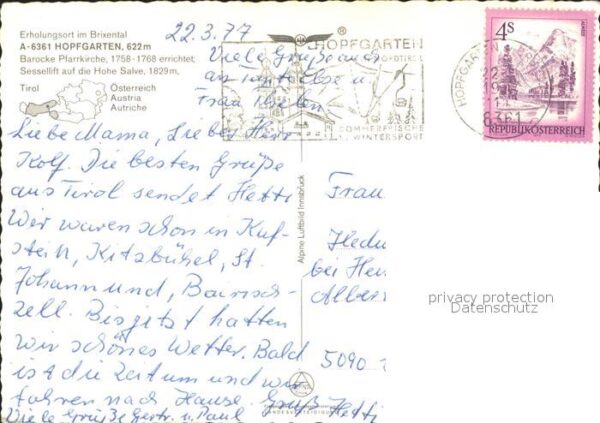 Erholungsort im Brixental
A-6361 HOPFGARTEN, 622m
Barocke Pfarrkirche, 1758-1768 errichtet;
Sessellift auf die Hohe Salve, 1829m,
Tirol
Österreich
Austria
Autriche
22.3.77
Viele Grüße auch
an
Frau
Liebe Mama, Lieber Herr
Kolf. Die besten Grüße
aus Tirol sendet Hetti
Wir waren schon in Kuf-
stein, Kitzbühel, St.
Johann und, Bairisch-
zell. Bis jetzt hatten
wir schönes Wetter. Bald
ist die Zeit um und wir
fahren nach Hause. Gruß Hetti
Viele Grüße Gertr. u. Paul
Alpine Luftbild Innsbruck
HOPFGARTEN
NORDTIROL
SOMMERFRISCHE
WINTERSPORT
HOPFGARTEN
8361
4S
REPUBLIK ÖSTERREICH
Frau
Hedw
bei Her
Alber
5090
privacy protection
Datenschutz